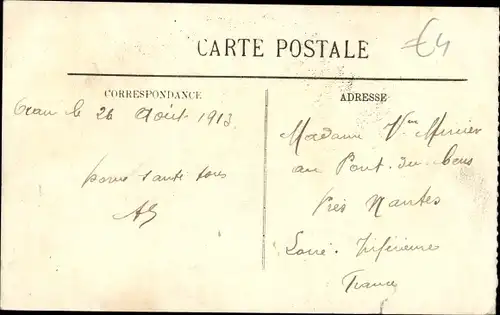 CARTE POSTALE
£4
CORRESPONDANCE
ADRESSE
Oran le 26 Août 1913
bonne santé tous
Madame Vve Mercier
au Pont-du-Cens
près Nantes
Loire-Inférieure
France